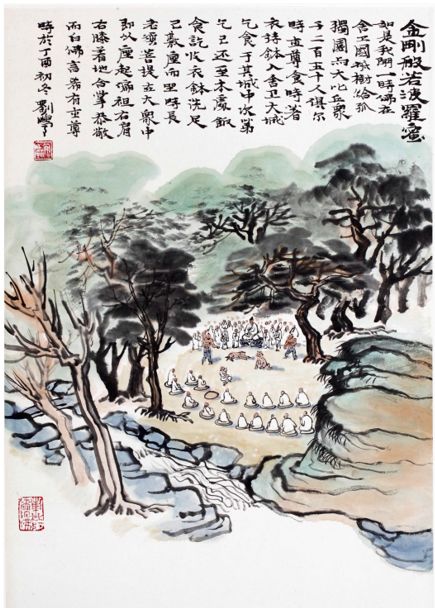 金剛般若波羅蜜
如是我聞一時佛在
舍卫國祇樹給孤
獨園而大比丘衆
千二百五十人俱尔
時世尊食時着
衣持鉢入舍卫大城
乞食于其城中次第
乞已还至本處飯
食訖收衣鉢洗足
已敷座而坐時長
老須菩提在大衆中
即以座起偏袒右肩
右膝着地合掌恭敬
而白佛言希有世尊
時於丁酉初冬劉學